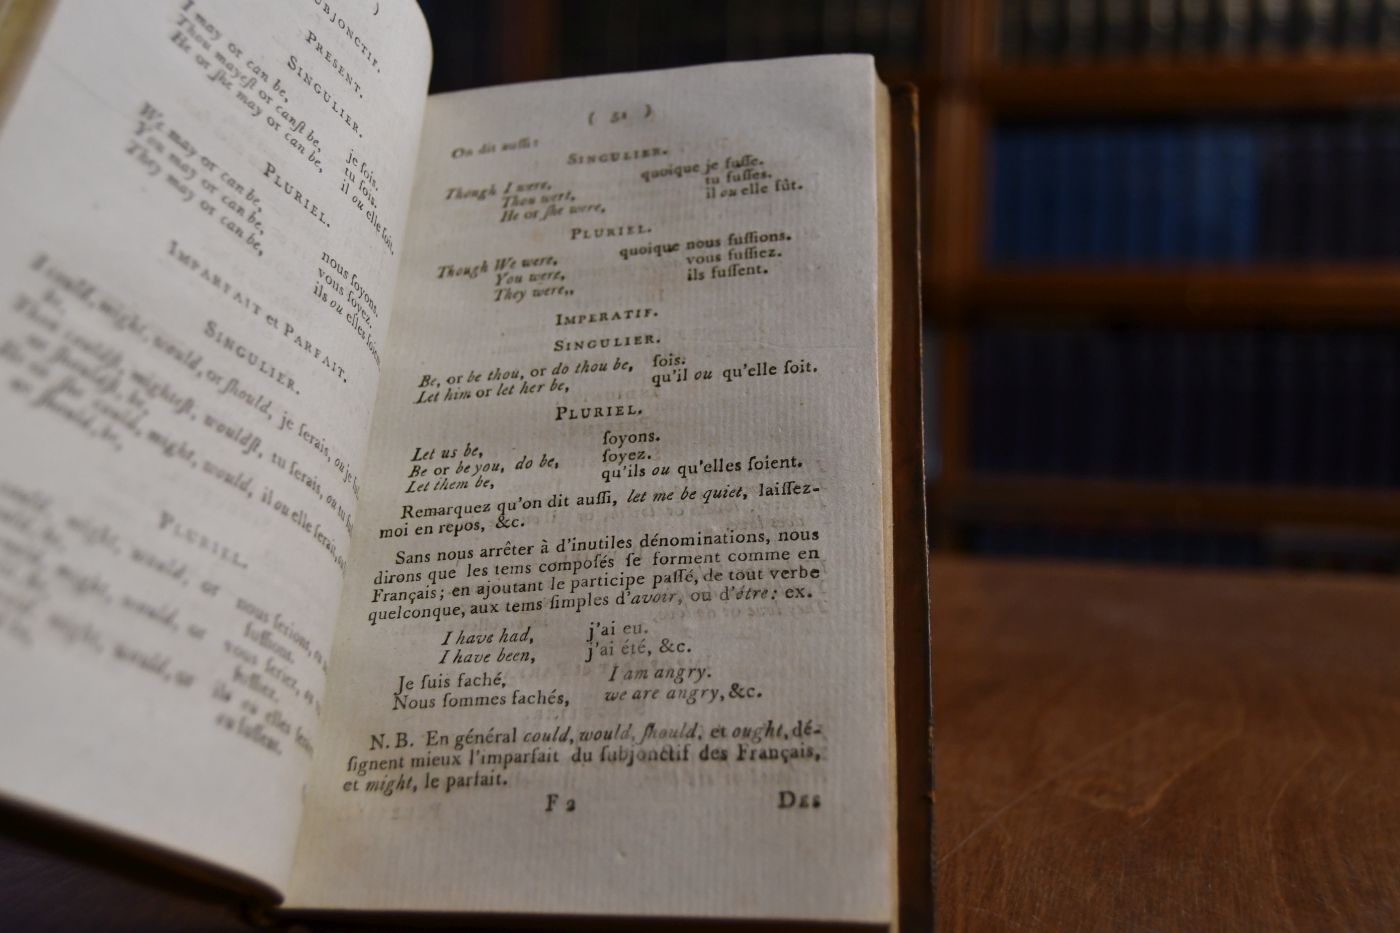 )
SUBJONCTIF.
PRESENT.
SINGULIER.
I may or can be, je ſois.
Thou mayeſt or canſt be, tu ſois.
He or ſhe may or can be, il ou elle ſoit.
PLURIEL.
We may or can be, nous ſoyons.
You may or can be, vous ſoyez.
They may or can be, ils ou elles ſoient
IMPARFAIT et PARFAIT.
SINGULIER.
I could, might, would, or ſhould, je ſerais, ou je
be.
Thou couldſt, mighteſt, wouldſt, tu ſerais, ou tu
or ſhouldſt, be,
He or ſhe could, might, would, il ou elle ſerait,
or ſhould, be,
PLURIEL.
could, might, would, or nous ſerions,
fuſſions.
might, would, or vous ſeriez, ou
fuſſiez.
might, would, or ils ou elles
ou fuſſent.
( 51 )
On dit auſſi:
SINGULIER.
Though I were, quoique je fuſſe.
Thou wert, tu fuſſes.
He or ſhe were, il ou elle fût.
PLURIEL.
Though We were, quoique nous fuſſions.
You were, vous fuſſiez.
They were,, ils fuſſent.
IMPERATIF.
SINGULIER.
Be, or be thou, or do thou be, ſois.
Let him or let her be, qu'il ou qu'elle ſoit.
PLURIEL.
Let us be, ſoyons.
Be or be you, do be, ſoyez.
Let them be, qu'ils ou qu'elles ſoient.
Remarquez qu'on dit auſſi, let me be quiet, laiſſez-
moi en repos, &c.
Sans nous arrêter à d'inutiles dénominations, nous
dirons que les tems compoſés ſe forment comme en
Français; en ajoutant le participe paſſé, de tout verbe
quelconque, aux tems ſimples d'avoir, ou d'être: ex.
I have had, j'ai eu.
I have been, j'ai été, &c.
Je ſuis faché, I am angry.
Nous ſommes fachés, we are angry, &c.
N. B. En général could, would, ſhould, et ought, dé-
ſignent mieux l'imparfait du ſubjonctif des Français,
et might, le parfait.
F 2 DES